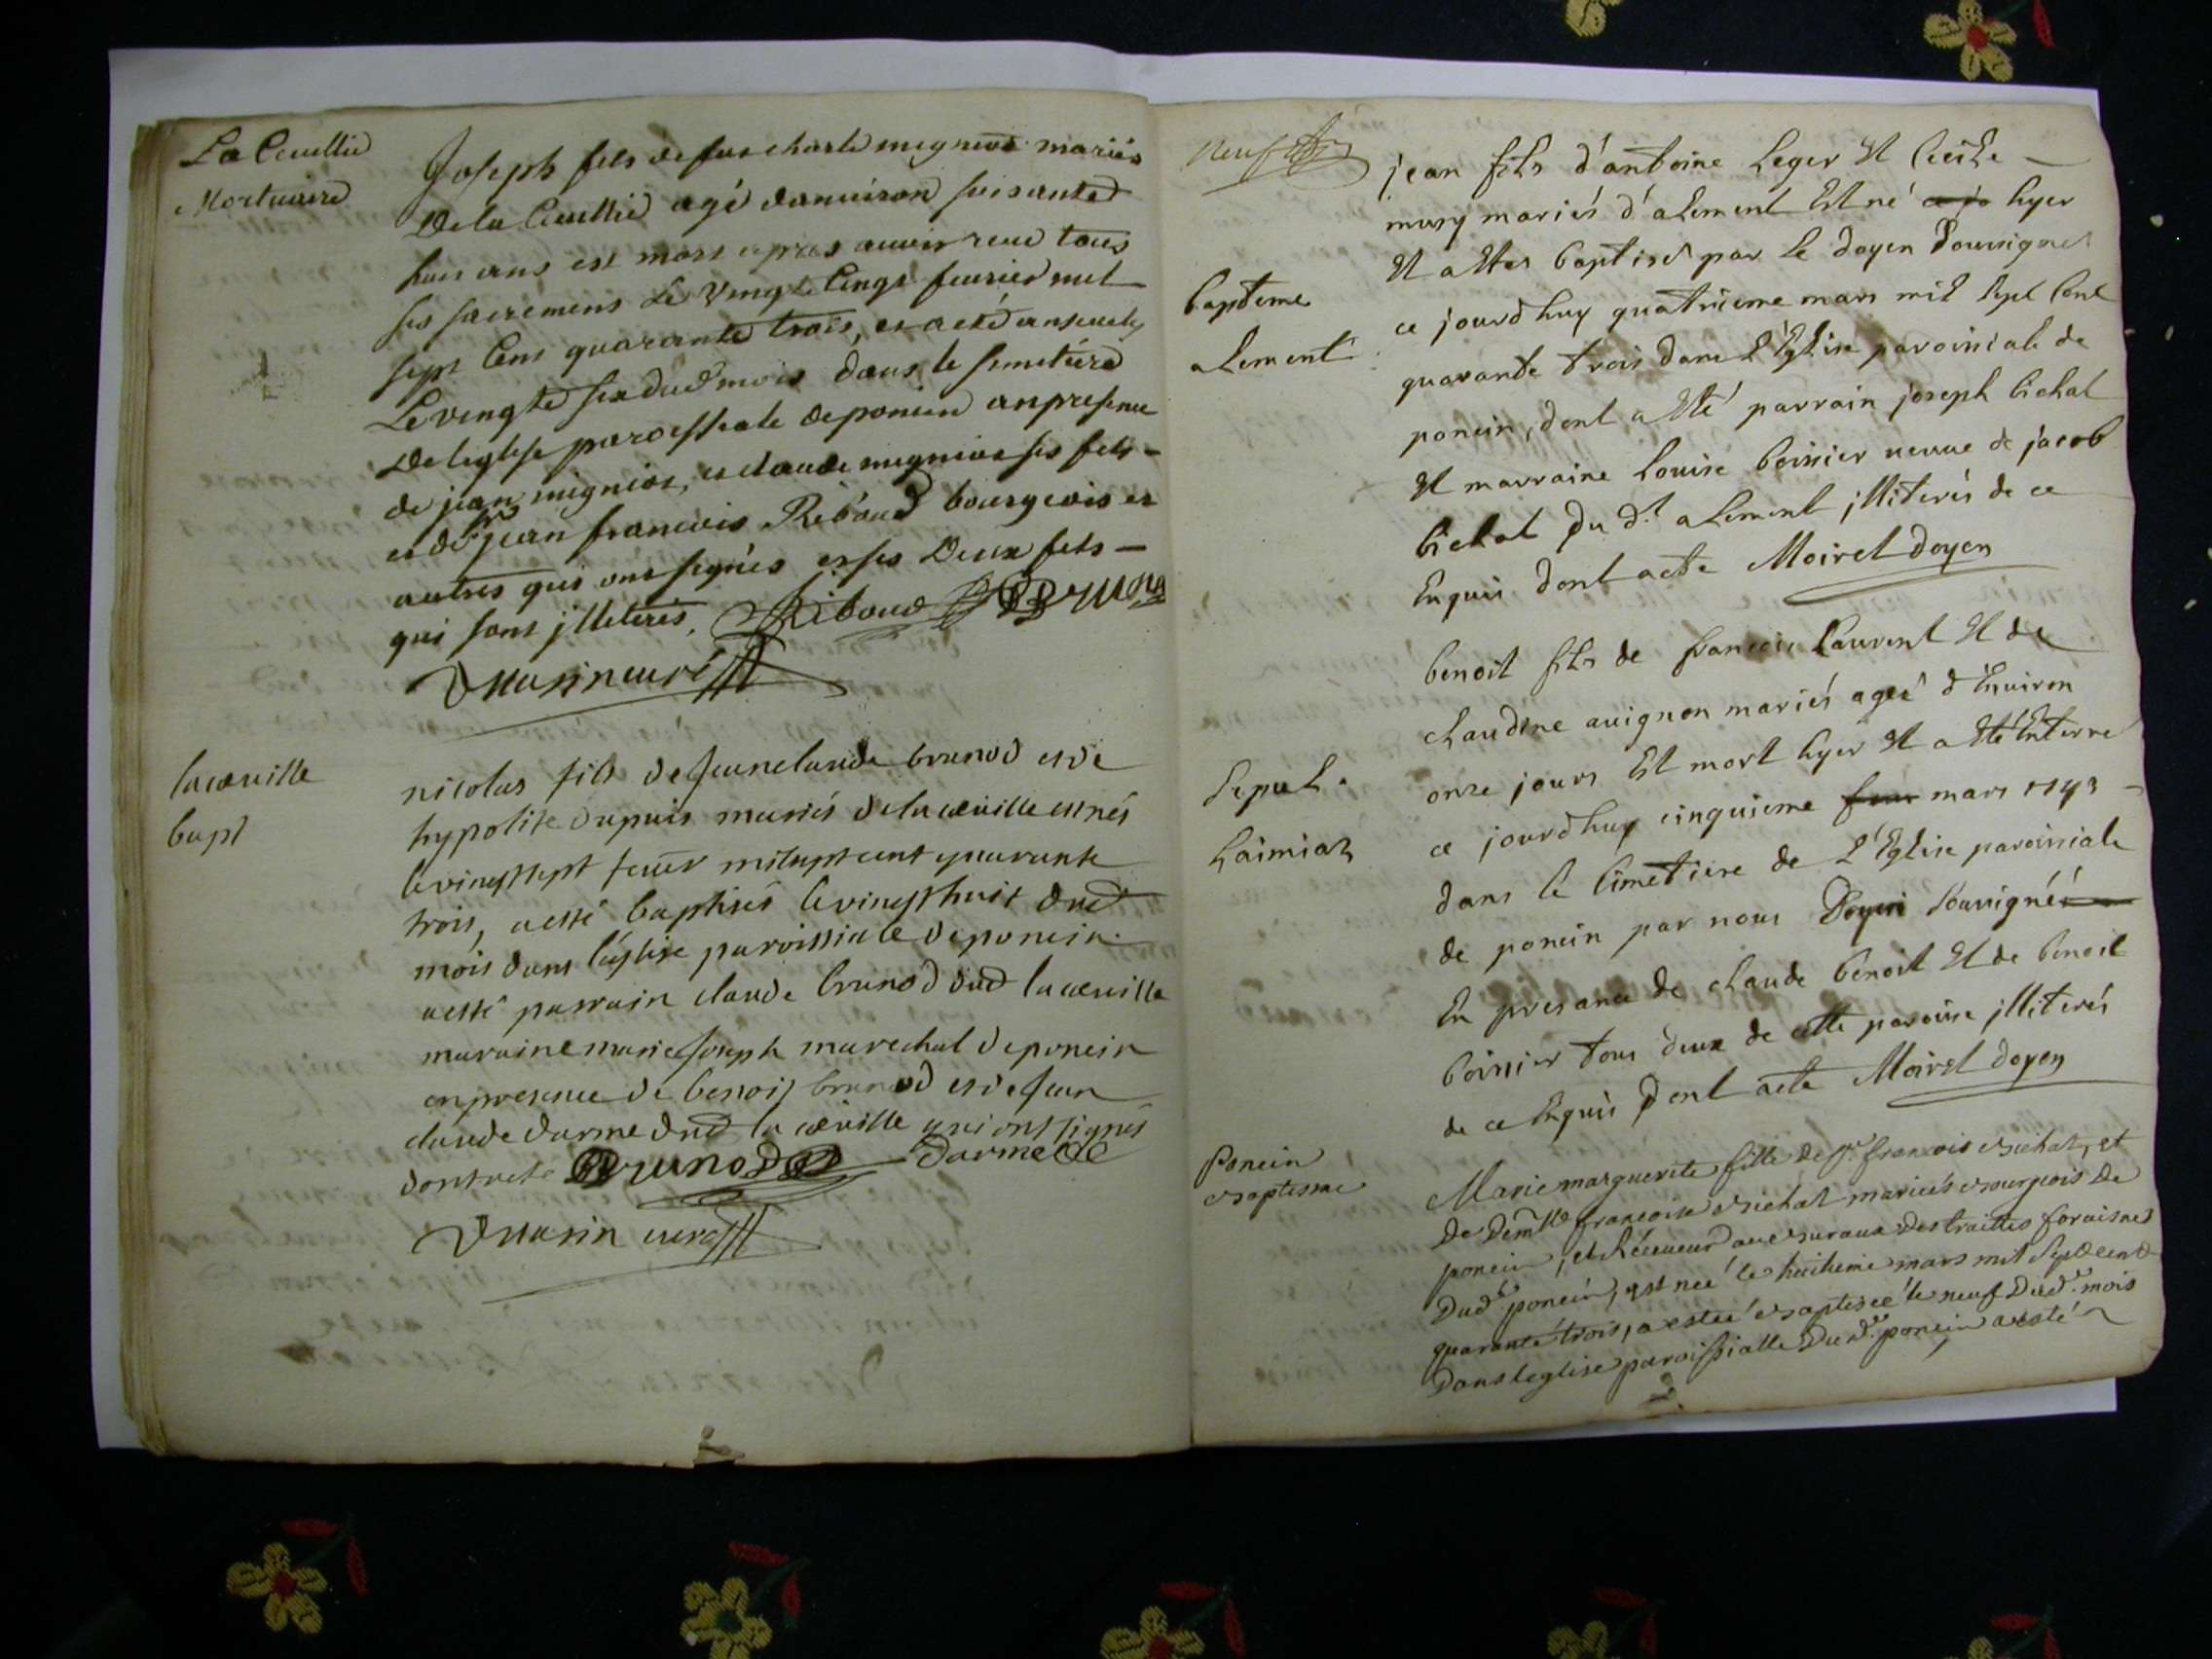 La Cueillie
Mortuaire
Joseph fils de feu charle migniot mariés
De la Cueillie agé danuiron soisante
huit ans est mort apres auoir receu tous
ses sacremens Le Vingte Cinqt feurier mil
sept Cens quarante trois, et a eté anseuely
Le vingte six dud mois dans le simetiere
De leglise paroissiale de poncin an presence
de jean migniot, et claude migniot ses fils
et de sr jean francois Ribaud bourgeois et
autres qui ont signés et ses Deux fils
qui sont jlleterés. Ribaud Brunod
curé
la cœuille
bapt
nicolas fils de Jean claude brunod et de
hypolite dupuis mariés de la cœuille est nés
le vingtsept feuer mil sept cent quarante
trois, a esté baptisés le vingthuit dud
mois dans l'église paroissiale de poncin
a esté parrain claude brunod dud la cœuille
maraine marie Joseph marechal de poncin
en presence de benoit brunod et de Jean
claude darme dud la cœuille qui ont signés
dont acte Brunod Darme
curé
neuf
bapteme
alement
jean fils d'antoine Leger Et Cecile
musy mariés d'alement Est né ce jo hyer
Et a Eter baptisé par Le doyen soussigné
ce jourdhuy quatrieme mars mil sept Cent
quarante trois dans L'Eglise paroissiale de
poncin, dont a Eté parrain joseph bichat
Et marraine Louise boissier veuve de jacob
bichat du dt alement jlliterés de ce
Enquis dont acte Moiret doyen
Sepul.
Laimiaz
benoit fils de francois Laurent Et de
claudine auignon mariés ageé d'Enuiron
onze jours Est mort hyer Et a Eté Enterré
ce jourdhuy cinquieme feur mars 1743
dans le Cimetiere de L'Eglise paroissiale
de poncin par nous Doyen soussigné
En presance de claude benoit Et de benoit
boissier tous deux de cette paroisse jlliterés
de ce Enquis dont acte Moiret doyen
Poncin
Baptesme
Marie marguerite fille de sr francois Bichat, et
De Demlle francoise Bichat mariés Bourgois De
poncin, et Receueur au Buraux des traittes foraines
Dudt poncin, est neé le huitieme mars mil sept cent
quarante trois, a esteé Baptiseé le neuf Dudt mois
Dans leglise paroissialle Dudt poncin a esté